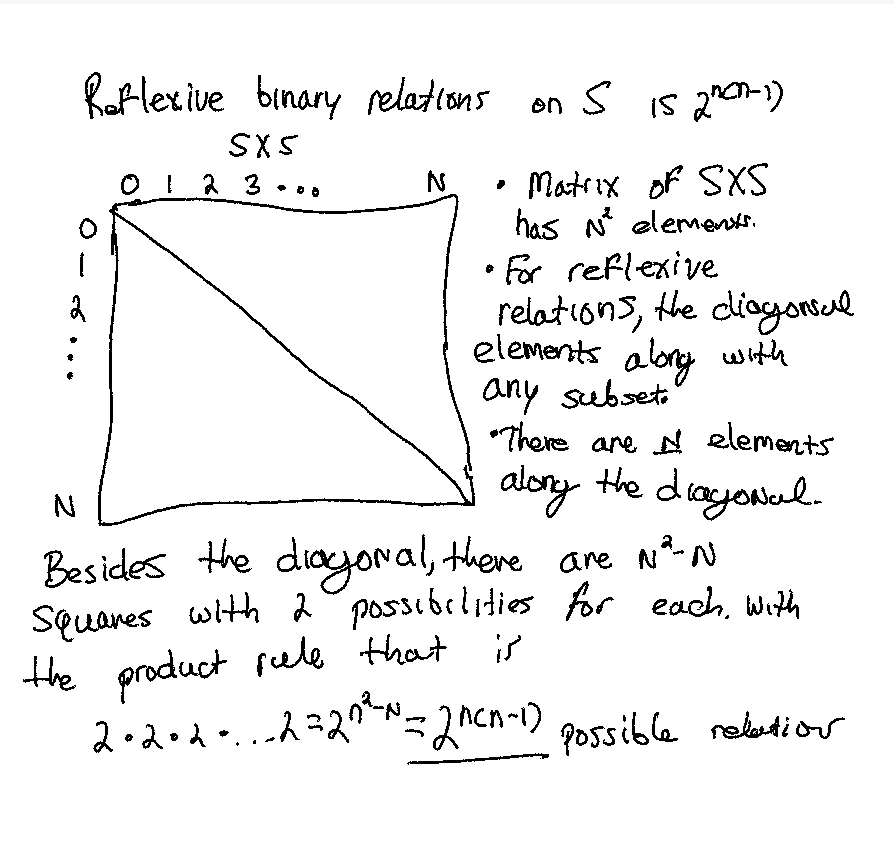 Reflexive binary relations on S is 2^n(n-1)
SXS
0 1 2 3 ... N
0
1
2
⋮
N
• Matrix of SXS
has N² elements.
• For reflexive
relations, the diagonal
elements along with
any subset.
• There are N elements
along the diagonal.
Besides the diagonal, there are N²-N
squares with 2 possibilities for each. With
the product rule that is
2•2•2•...2=2^n²-N=2^n(n-1) possible relation